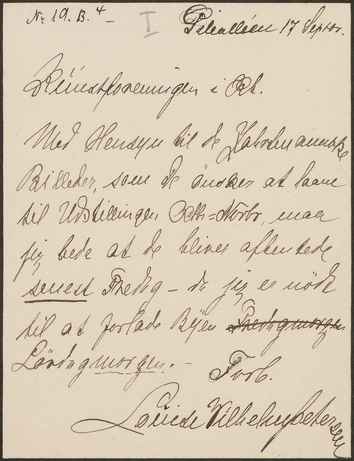 No 19. B. 4
I
Pilealléen 17 Septbr.
Kunstforeningen i Kbh.
Med Hensyn til de
Billeder, som De ønsker at laane
til Udstillingen Oktb-Novbr, maa
jeg bede at de bliver afhentede
senest Fredag – da jeg er nødt
til at forlade Byen Fredagmorgen
Lørdagmorgen. –
Forb.
Louise Vilhelm Petersen